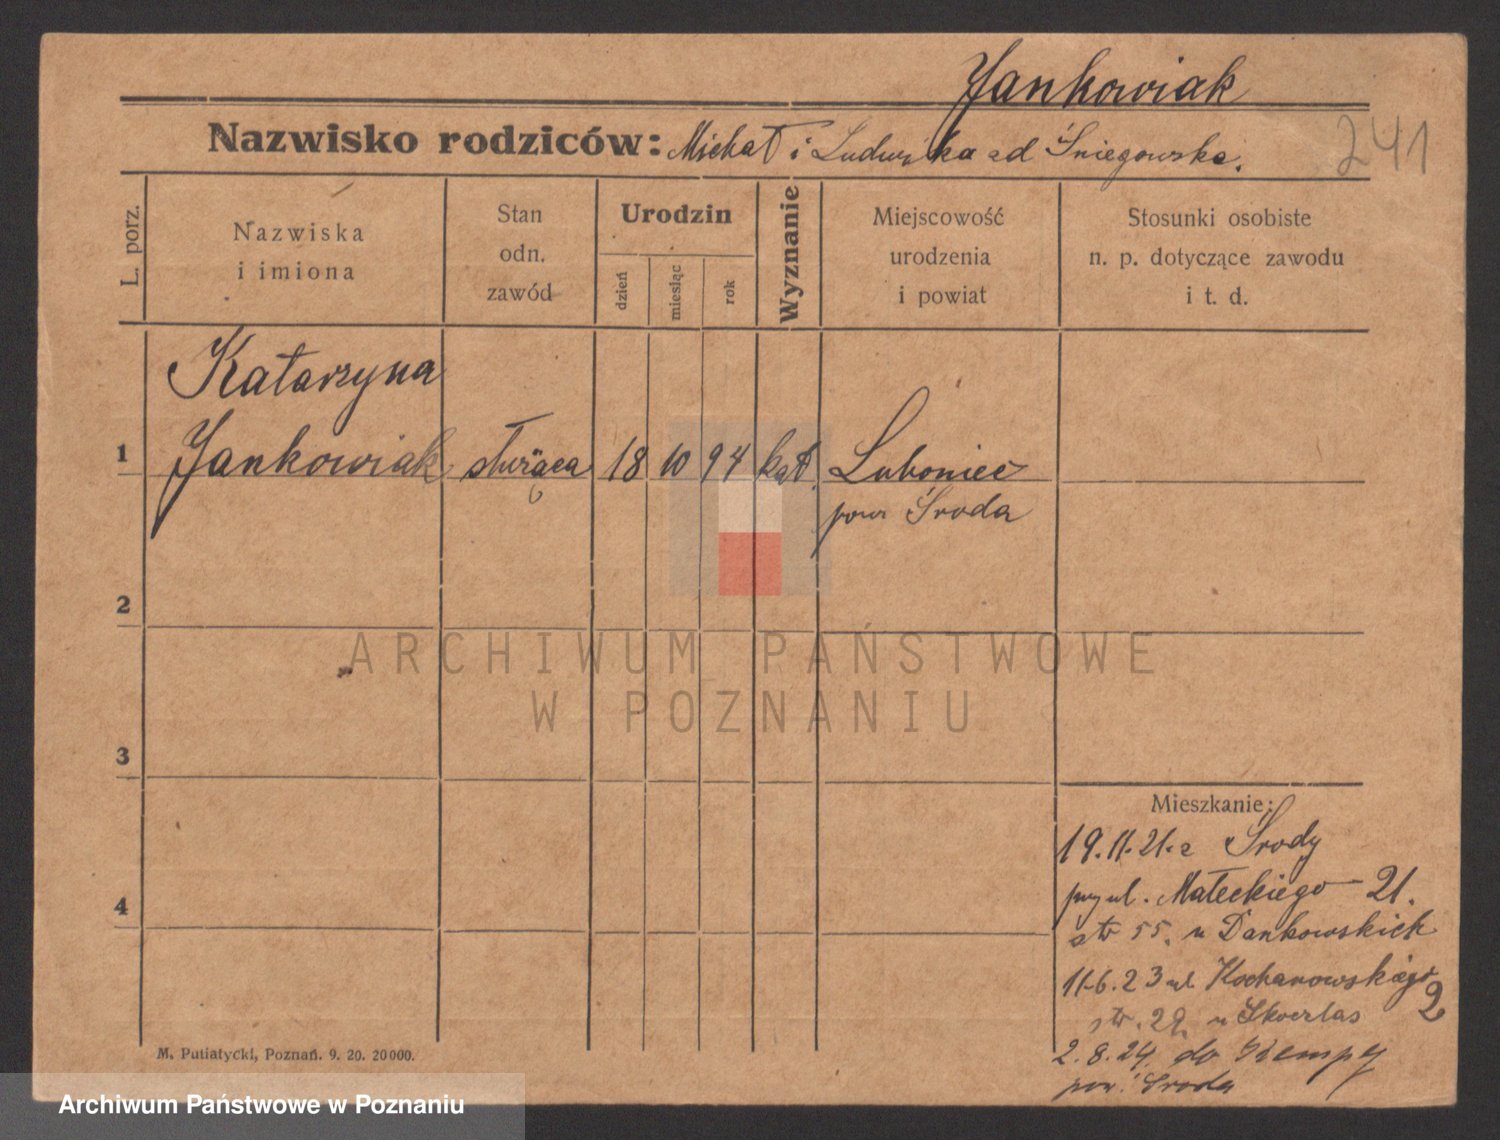 Jankowiak
Nazwisko rodziców: Michał i Ludwika od Śniegowska.
241
L. porz.
Nazwiska
i imiona
Stan
odn.
zawód
Urodzin
dzień
miesiąc
rok
Wyznanie
Miejscowość
urodzenia
i powiat
Stosunki osobiste
n. p. dotyczące zawodu
i t. d.
Katarzyna
1 Jankowiak służąca 18 10 94 kat. Luboniec
pow Środa
2
ARCHIWUM PAŃSTWOWE
W POZNANIU
3
Mieszkanie:
19.11.21. z Środy
4
przy ul. Małeckiego 21.
str 55. u Dankowskich
11.6.23 ul. Kochanowskiego 2
str. 29. u
2.8.24. do Kempy
pow. Środa
M. Putiatycki, Poznań. 9. 20. 20000.
Archiwum Państwowe w Poznaniu